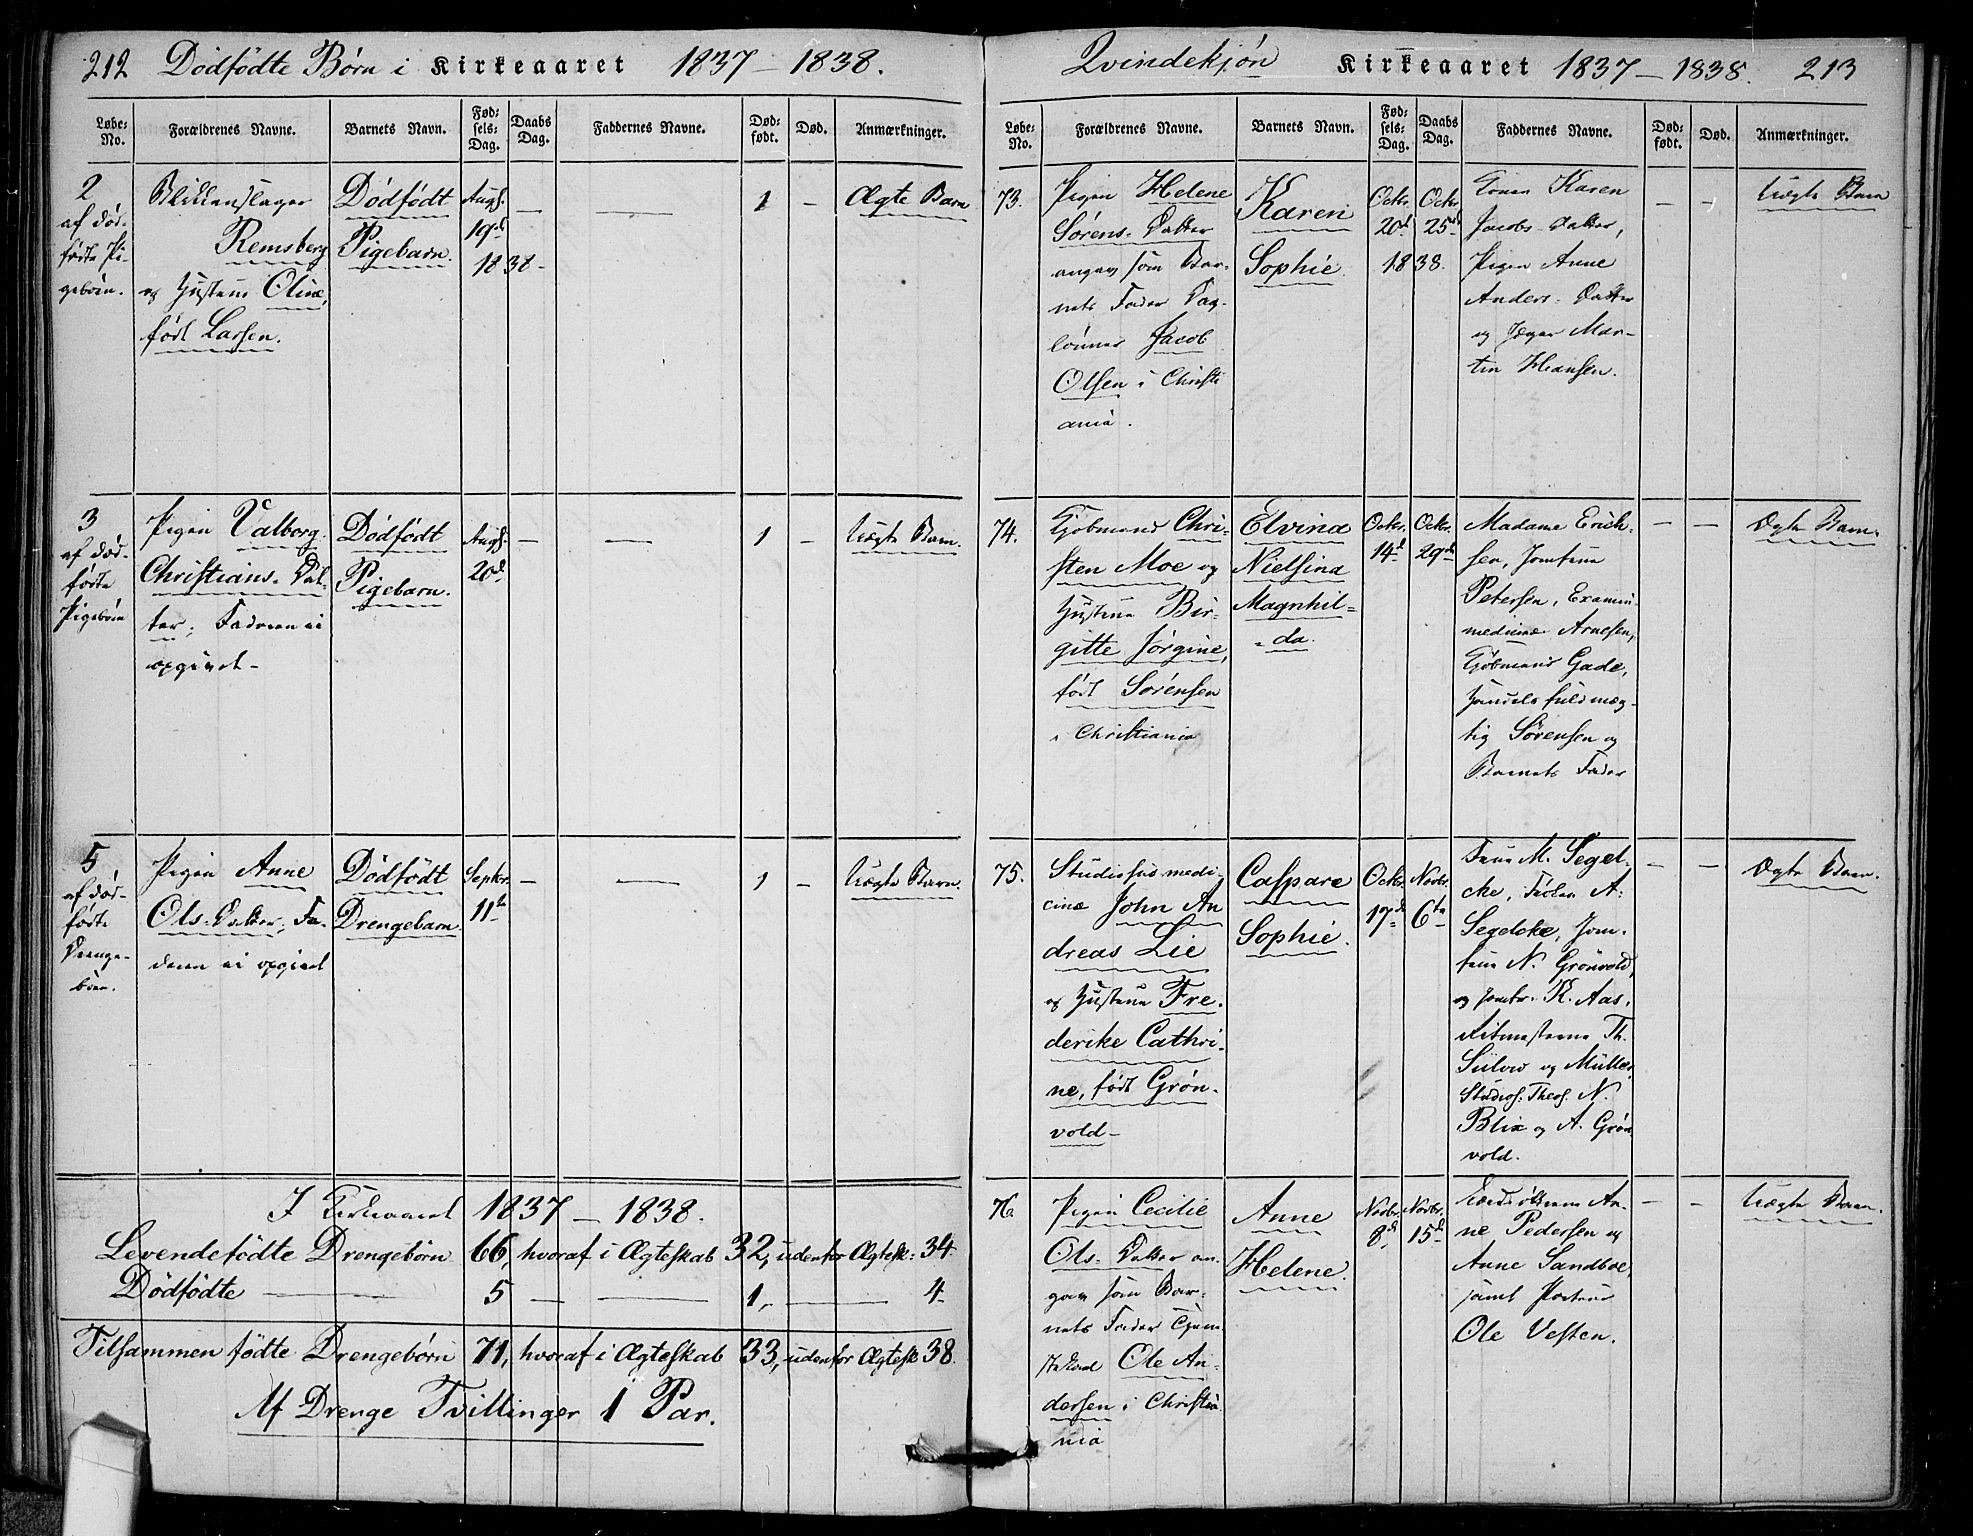 212 Dödfödte Börn i Kirkeaaret 1837 – 1838.
Løbe-No. Forældrenes Navne. Barnets Navn. Fød-sels-Dag. Daabs Dag. Faddernes Navne. Død-født. Død. Anmærkninger.
2
af död-
födte Pi-
gebörn.
Blikkenslager
Remsberg
og Hustrue Oline,
født Larsen.
Dödfödt
Pigebarn.
Augs.
19de
1838.
—
—
1
–
Ægte Barn
3
af död-
födte
Pigebörn
Pigen Valborg
Christians-Dat-
ter; Faderen ei
opgivet –
Dödfödt
Pigebarn.
Augs.
20de
—
—
1
–
Uægte Barn.
5
af död-
födte
Drenge-
börn.
Pigen Anne
Ols-Datter; Fa-
deren ei opgivet
Dödfödt
Drengebarn.
Septbr.
11te
—
—
1
–
Uægte Barn.
I Kirkeaaret 1837 – 1838.
Levendefödte Drengebörn 66, hvoraf i Ægteskab 32, udenfor Ægtesk: 34.
Dödfödte — 5 — — 1, — 4
Tilsammen födte Drengebörn 71, hvoraf i Ægteskab 33, udenfor Ægtesk 38.
Af Drenge Tvillinger 1 Par.
Qvindekjön Kirkeaaret 1837 – 1838. 213
Løbe-No. Forældrenes Navne. Barnets Navn. Fød-sels-Dag. Daabs Dag. Faddernes Navne. Død-født. Død. Anmærkninger.
73.
Pigen Helene
Sörens-Datter
angav som Bar-
nets Fader Dag-
lönner Jacob
Olsen i Christi
ania.
Karen
Sophie.
Octbr.
20de
Octbr.
25de
1838.
Konen Karen
Jacobs-Datter,
Pigen Anne
Anders-Datter
og Jæger Mar-
tin Hansen.
–
–
Uægte Barn
74.
Kjöbmand Chri-
sten Moe og
Hustrue Bir-
gitte Jörgine,
födt Sörensen
i Christiania
Elvina
Nielsina
Magnhil=
=da.
Octbr.
14de
Octbr.
29de
Madame Erich-
sen, Jomfrue
Petersen, Examin.
medicinæ Arnesen,
Kjöbmand Gade,
Handelsfuldmæg-
tig Sörensen og
Barnets Fader
–
–
Ægte Barn.
75.
Studiosus medi-
cinæ John An
dreas Lie
og Hustrue Fre-
derike Cathri-
ne, födt Grön-
vold –
Caspare
Sophie.
Octbr.
17de
Novbr.
6te
Frue M. Segel-
cke, Fröken A.
Segelcke, Jom-
frue N. Grönvold,
og Jomfr. K. Aas,
Ritmesterne Th.
Sülow og Müller,
Studios: Theol. N.
Blix og A. Grön
vold.
–
–
Ægte Barn.
76.
Pigen Cecilie
Ols-Datter an-
gav som Bar-
nets Fader Tjene
stekarl Ole An-
dersen i Christia
nia
Anne
Helene.
Novbr.
8de
Novbr.
15de
An-
ne Pedersen og
Anne Sandboe,
samt
Ole Vesten.
–
–
Uægte Barn.